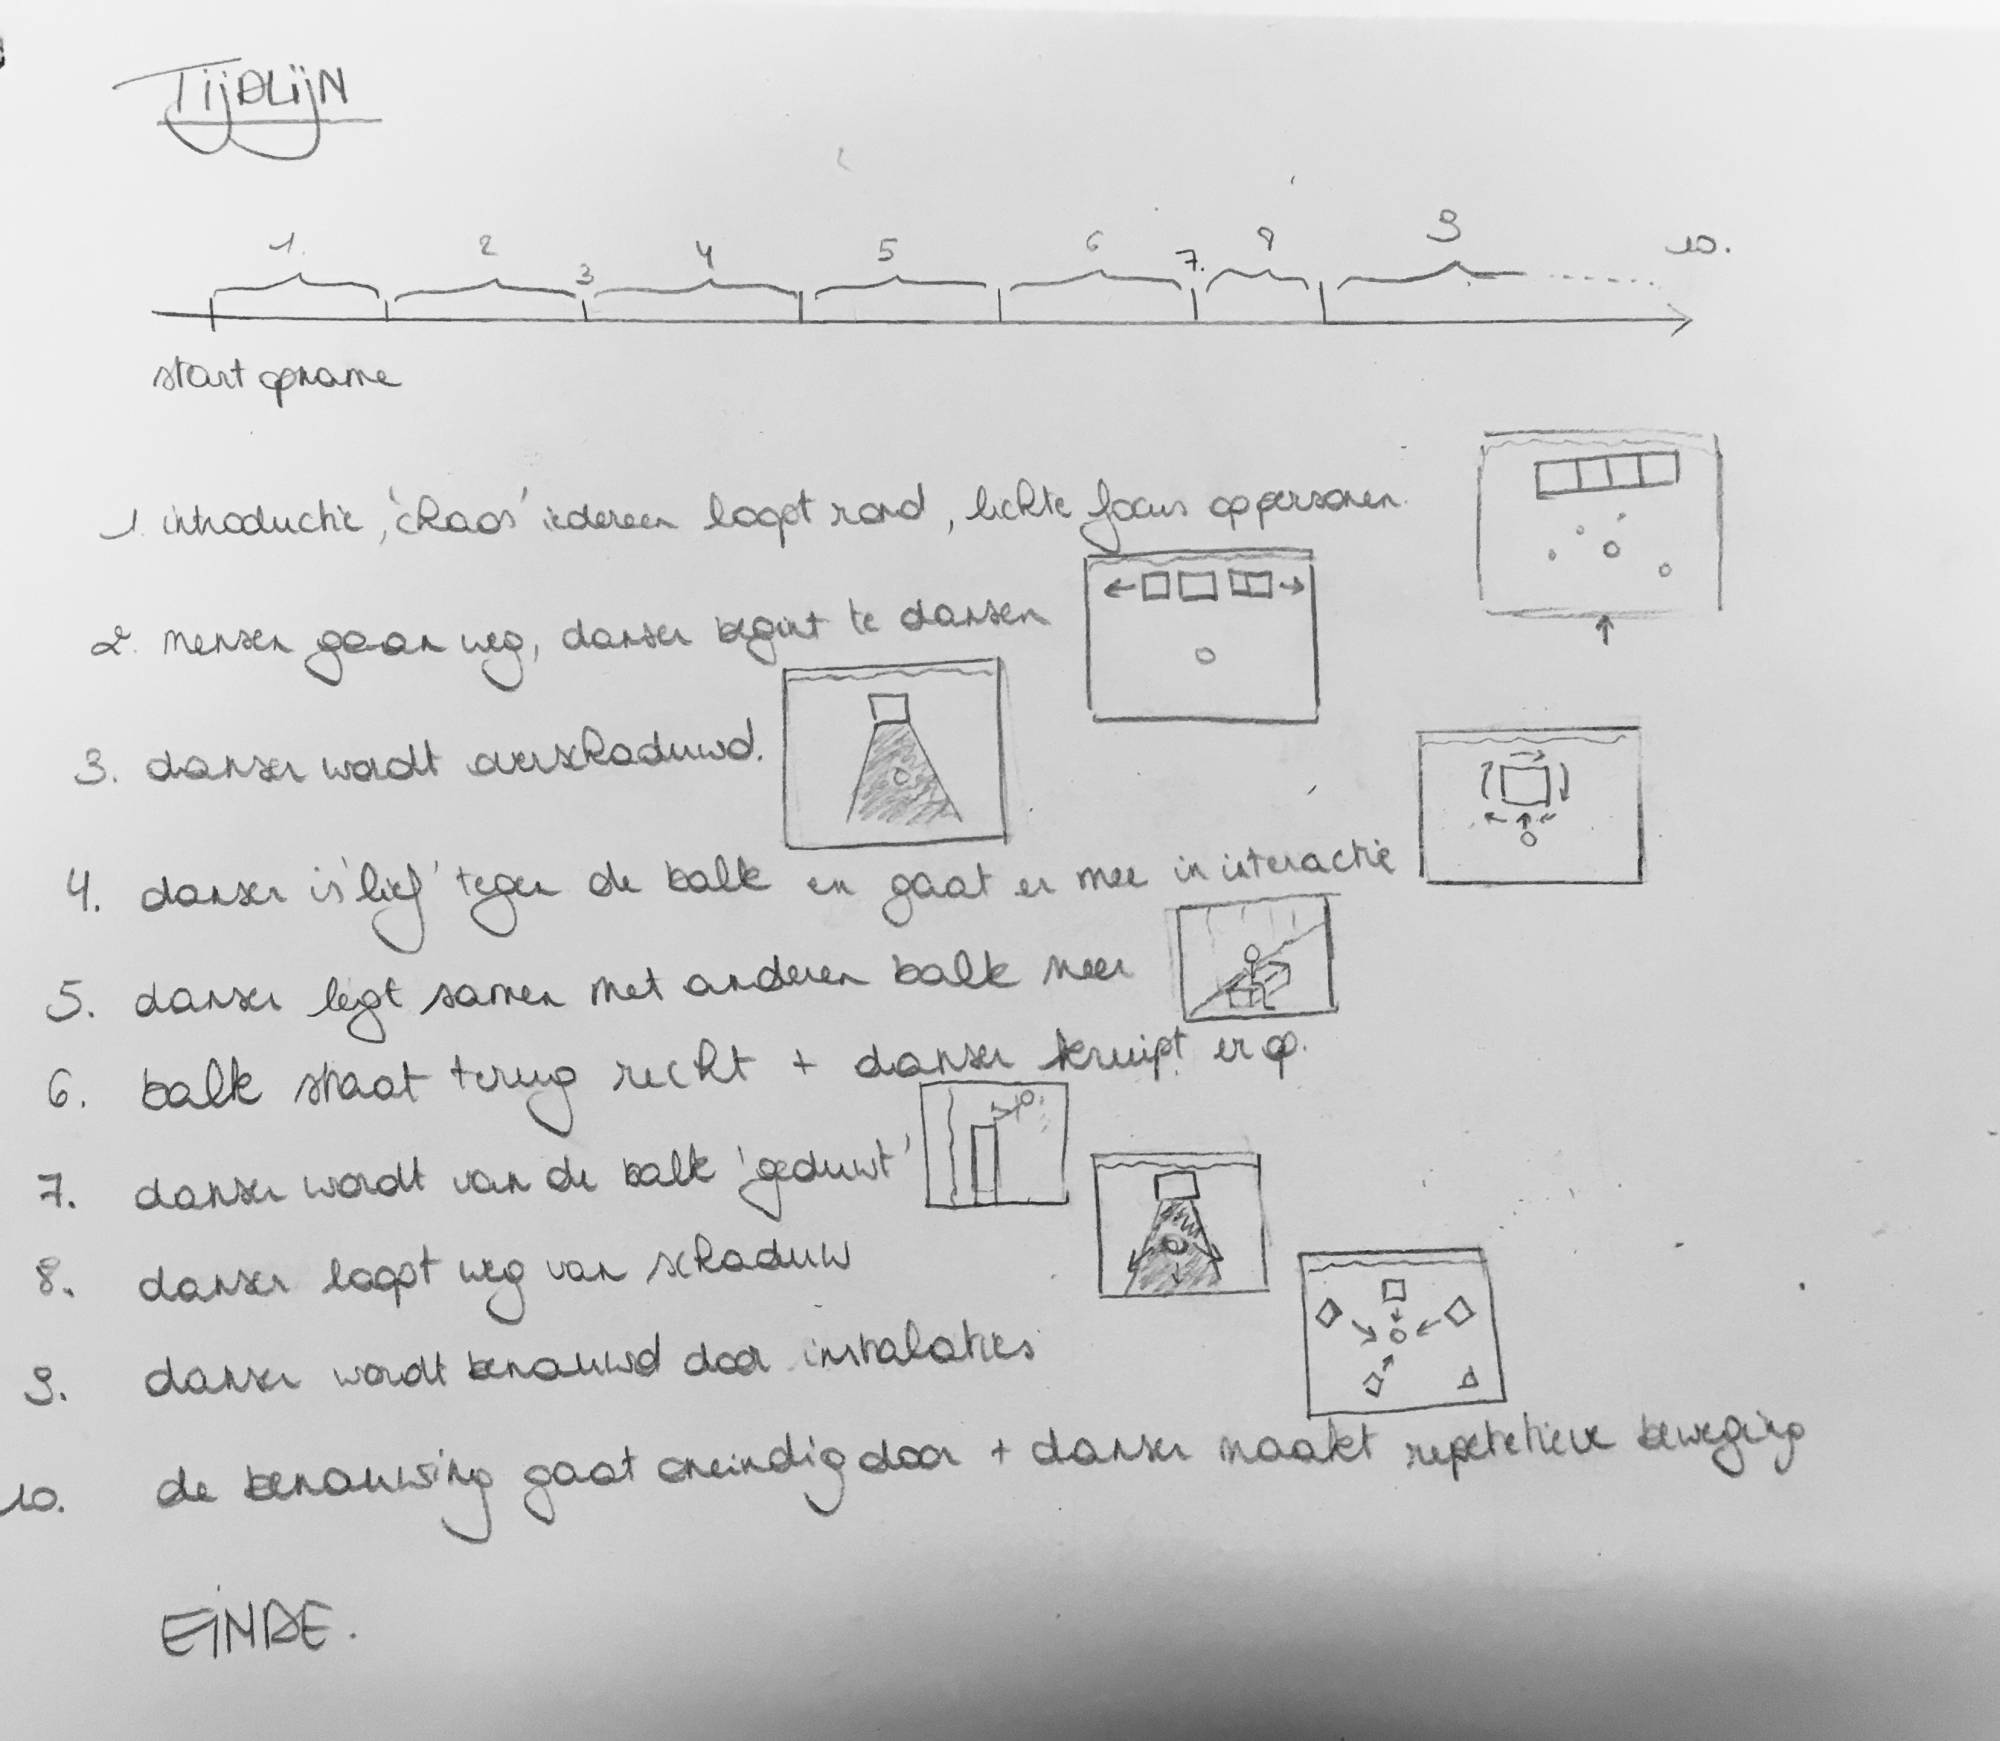 TijDLijN
1. 2 3 4 5 6 7. 8 9 10.
start opname
1. introductie, 'chaos' iedereen loopt rond, lichte focus op personen.
2. mensen gaan weg, danser begint te dansen
3. danser wordt overschaduwd.
4. danser is 'lief' tegen de balk en gaat er mee in interactie
5. danser legt samen met anderen balk neer
6. balk staat terug recht + danser kruipt er op.
7. danser wordt van de balk 'geduwt'
8. danser loopt weg van schaduw
9. danser wordt benauwd door instalaties
10. de benauwing gaat oneindig door + danser maakt repetetieve beweging
EiNDE.